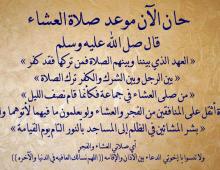 حان الآن موعد صلاة العشاء
قال صل الله عليه وسلم
« العهد الذي بيننا وبينهم الصلاة فمن تركها فقد كفر »
« بين الرجل وبين الشرك والكفر ترك الصلاة »
« من صلى العشاء في جماعة فكأنما قام نصف الليل »
أثقل على المنافقين من الفجر والعشاء ولو يعلمون ما فيهما لأتوهما
« بشر المشائين في الظلام إلى المساجد بالنور التام يوم القيامة »
أي صلاتي العشاء والفجر
ولا تنسوا يا إخوتي الدعاء بين الأذان والإقامة (( اللهم نسألك العافيه في الدنيا والآخره ))